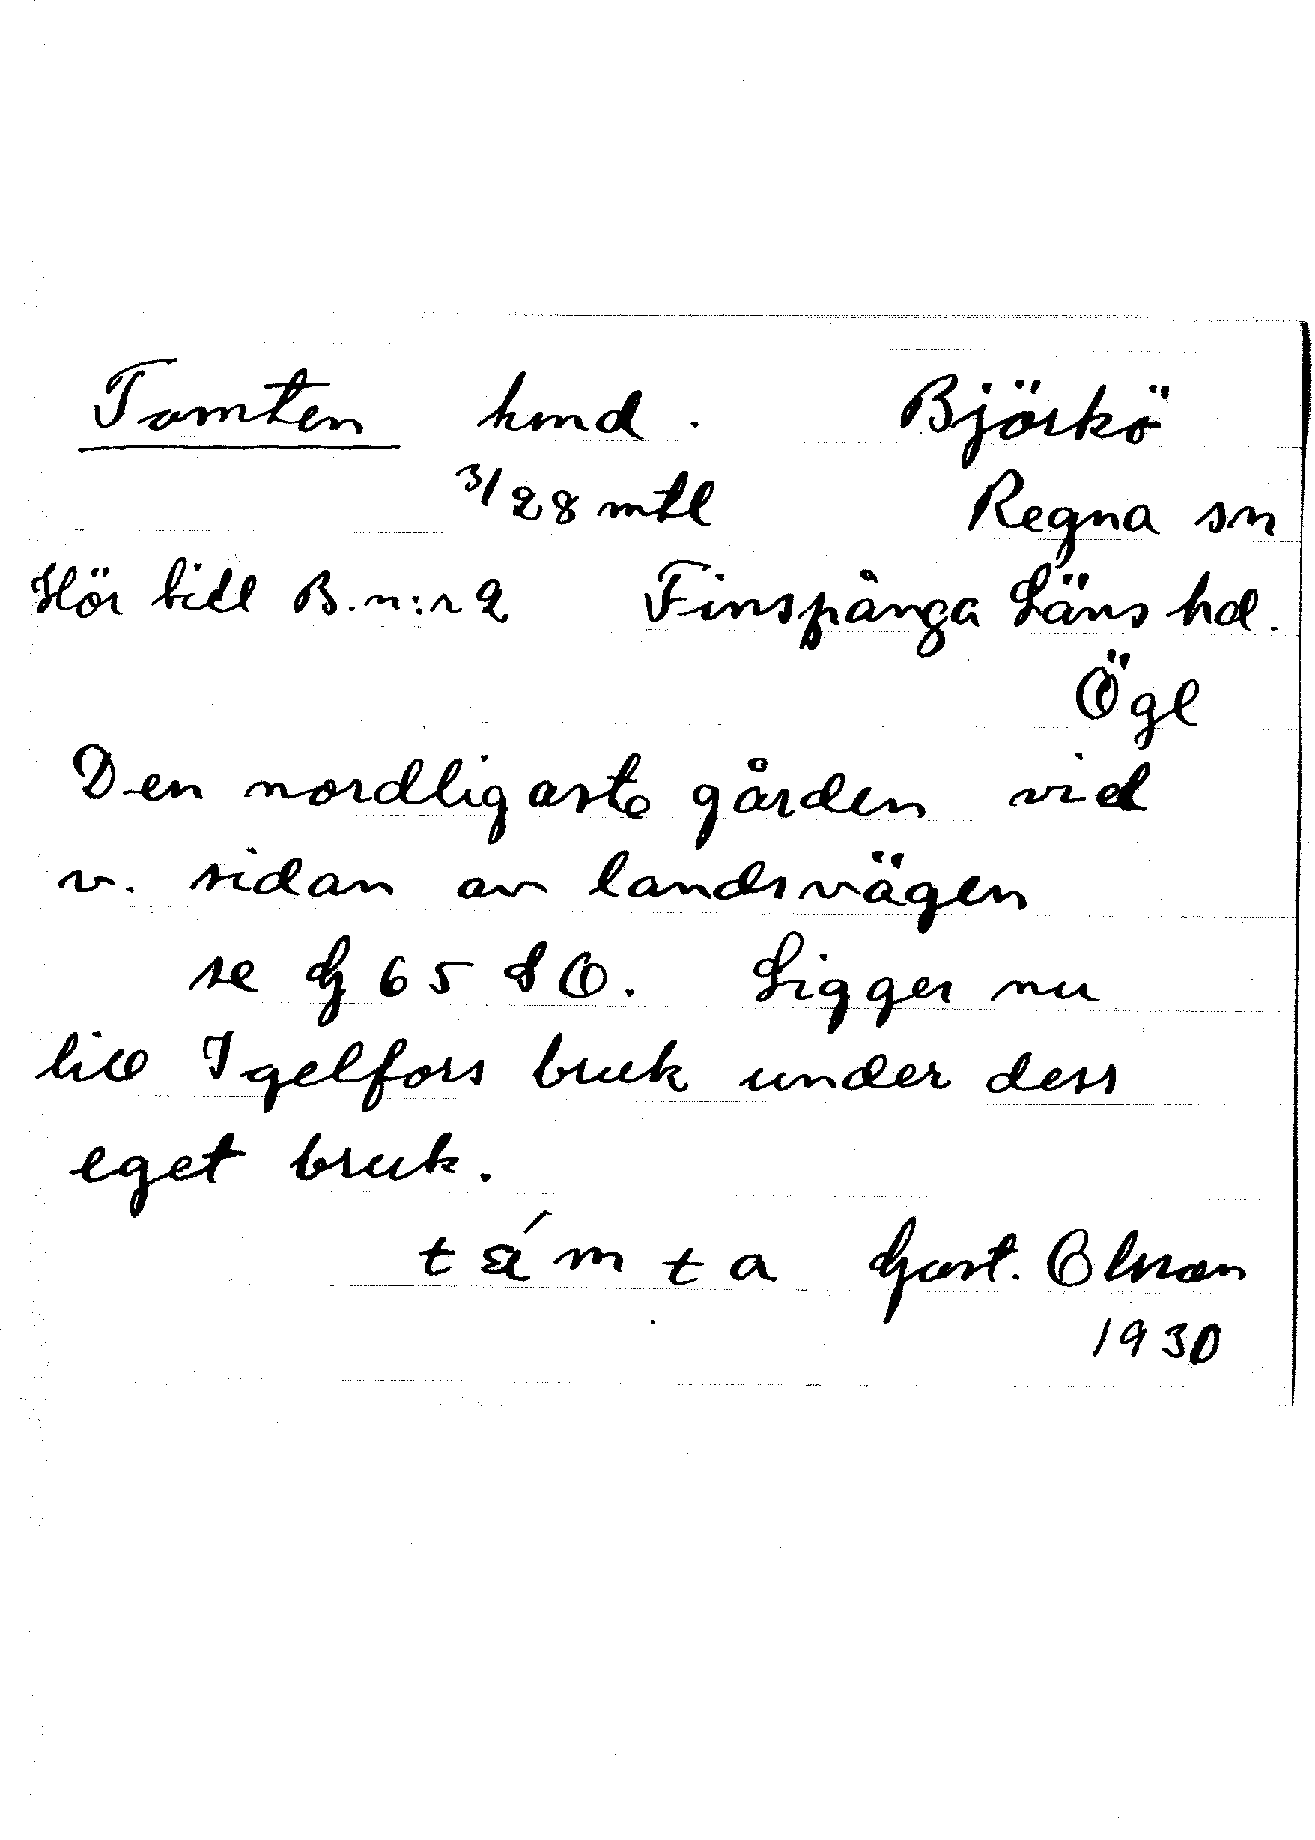 Tomten hmd. Björkö
3/28 mtl Regna sn
Hör till B. n:r 2 Finspånga Läns hd.
Ögl
Den nordligaste gården vid
v. sidan av landsvägen
se G 65 SO. Ligger nu
till Igelfors bruk under dess
eget bruk.
Gust. Olsson
1930